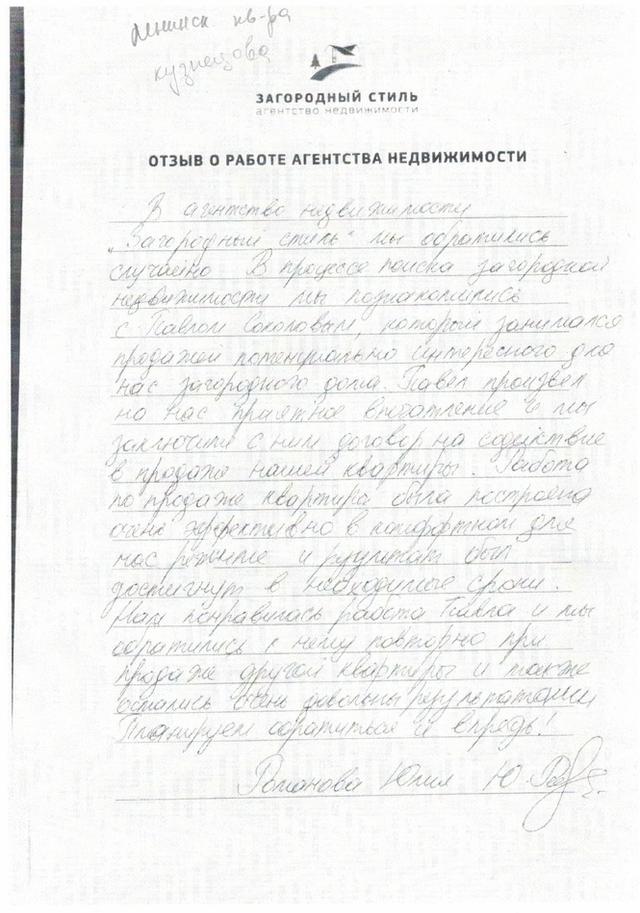 Ленинск кв-ра
Кузнецова
ЗАГОРОДНЫЙ СТИЛЬ
агентство недвижимости
ОТЗЫВ О РАБОТЕ АГЕНТСТВА НЕДВИЖИМОСТИ
В агентство недвижимости
„Загородный стиль" мы обратились
случайно В процессе поиска загородной
недвижимости мы познакомились
с Павлом Соколовым, который занимался
продажей потенциально интересного для
нас загородного дома. Павел произвел
на нас приятное впечатление и мы
заключили с ним договор на содействие
в продаже нашей квартиры. Работа
по продаже квартиры была построена
очень эффективно в комфортном для
нас режиме и результат был
достигнут в необходимые сроки.
Нам понравилась работа Павла и мы
обратились к нему повторно при
продаже другой квартиры и также
остались очень довольны результатами
Планируем обратиться и впредь!
Романова Юлия Ю.